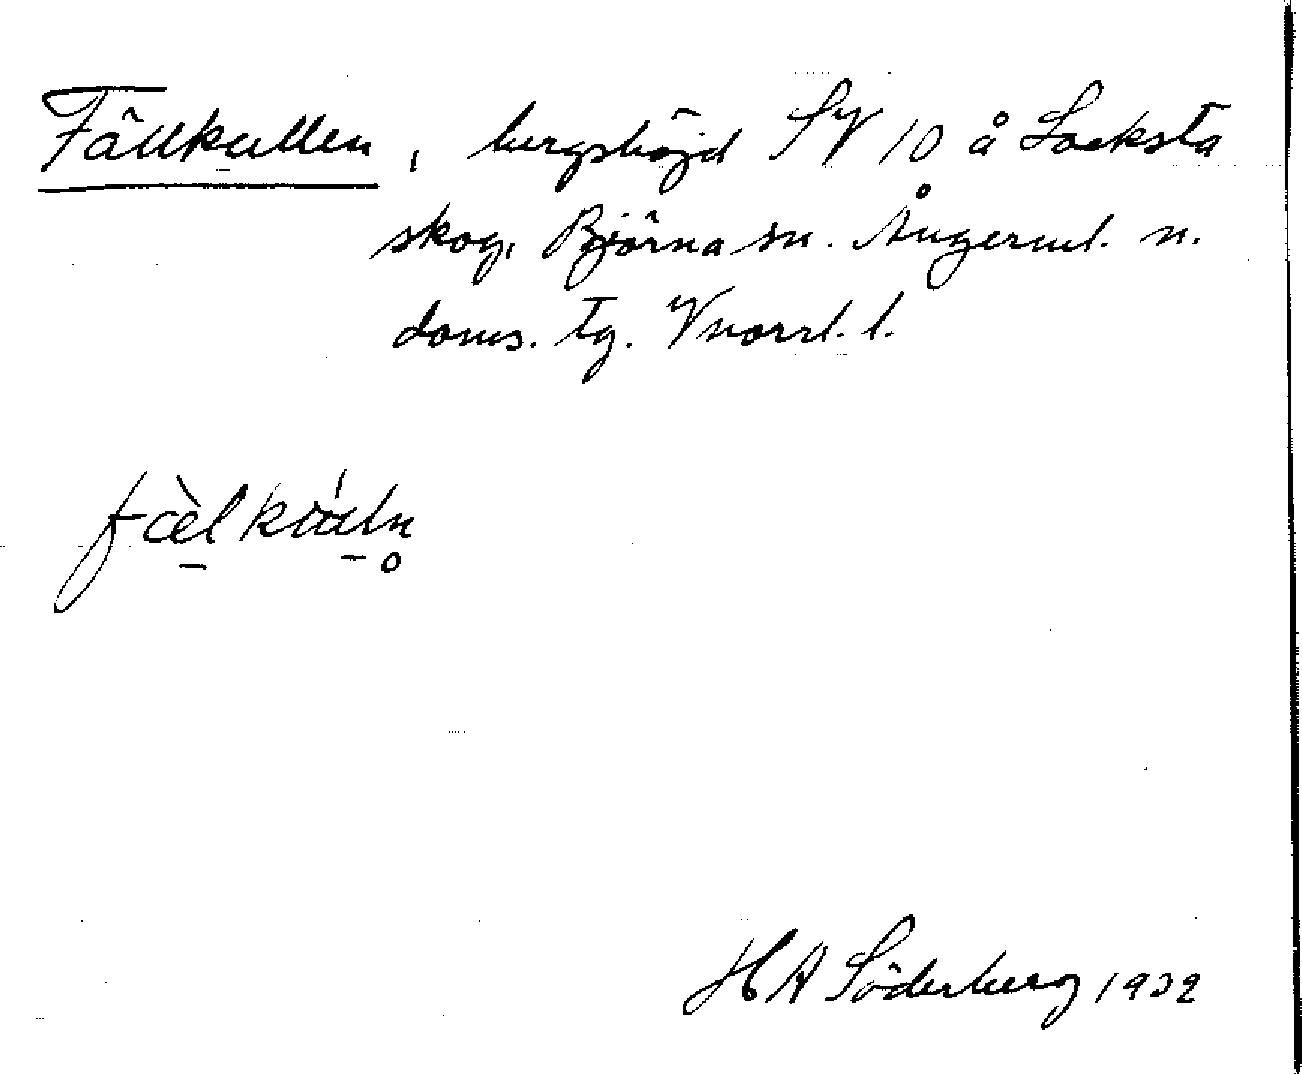 Fällkullen, bergshöjd SV 10 å Locksta
skog, Björna sn. Ångerml. n.
doms. tg. Vnorrl. l.
H A Söderberg 1932